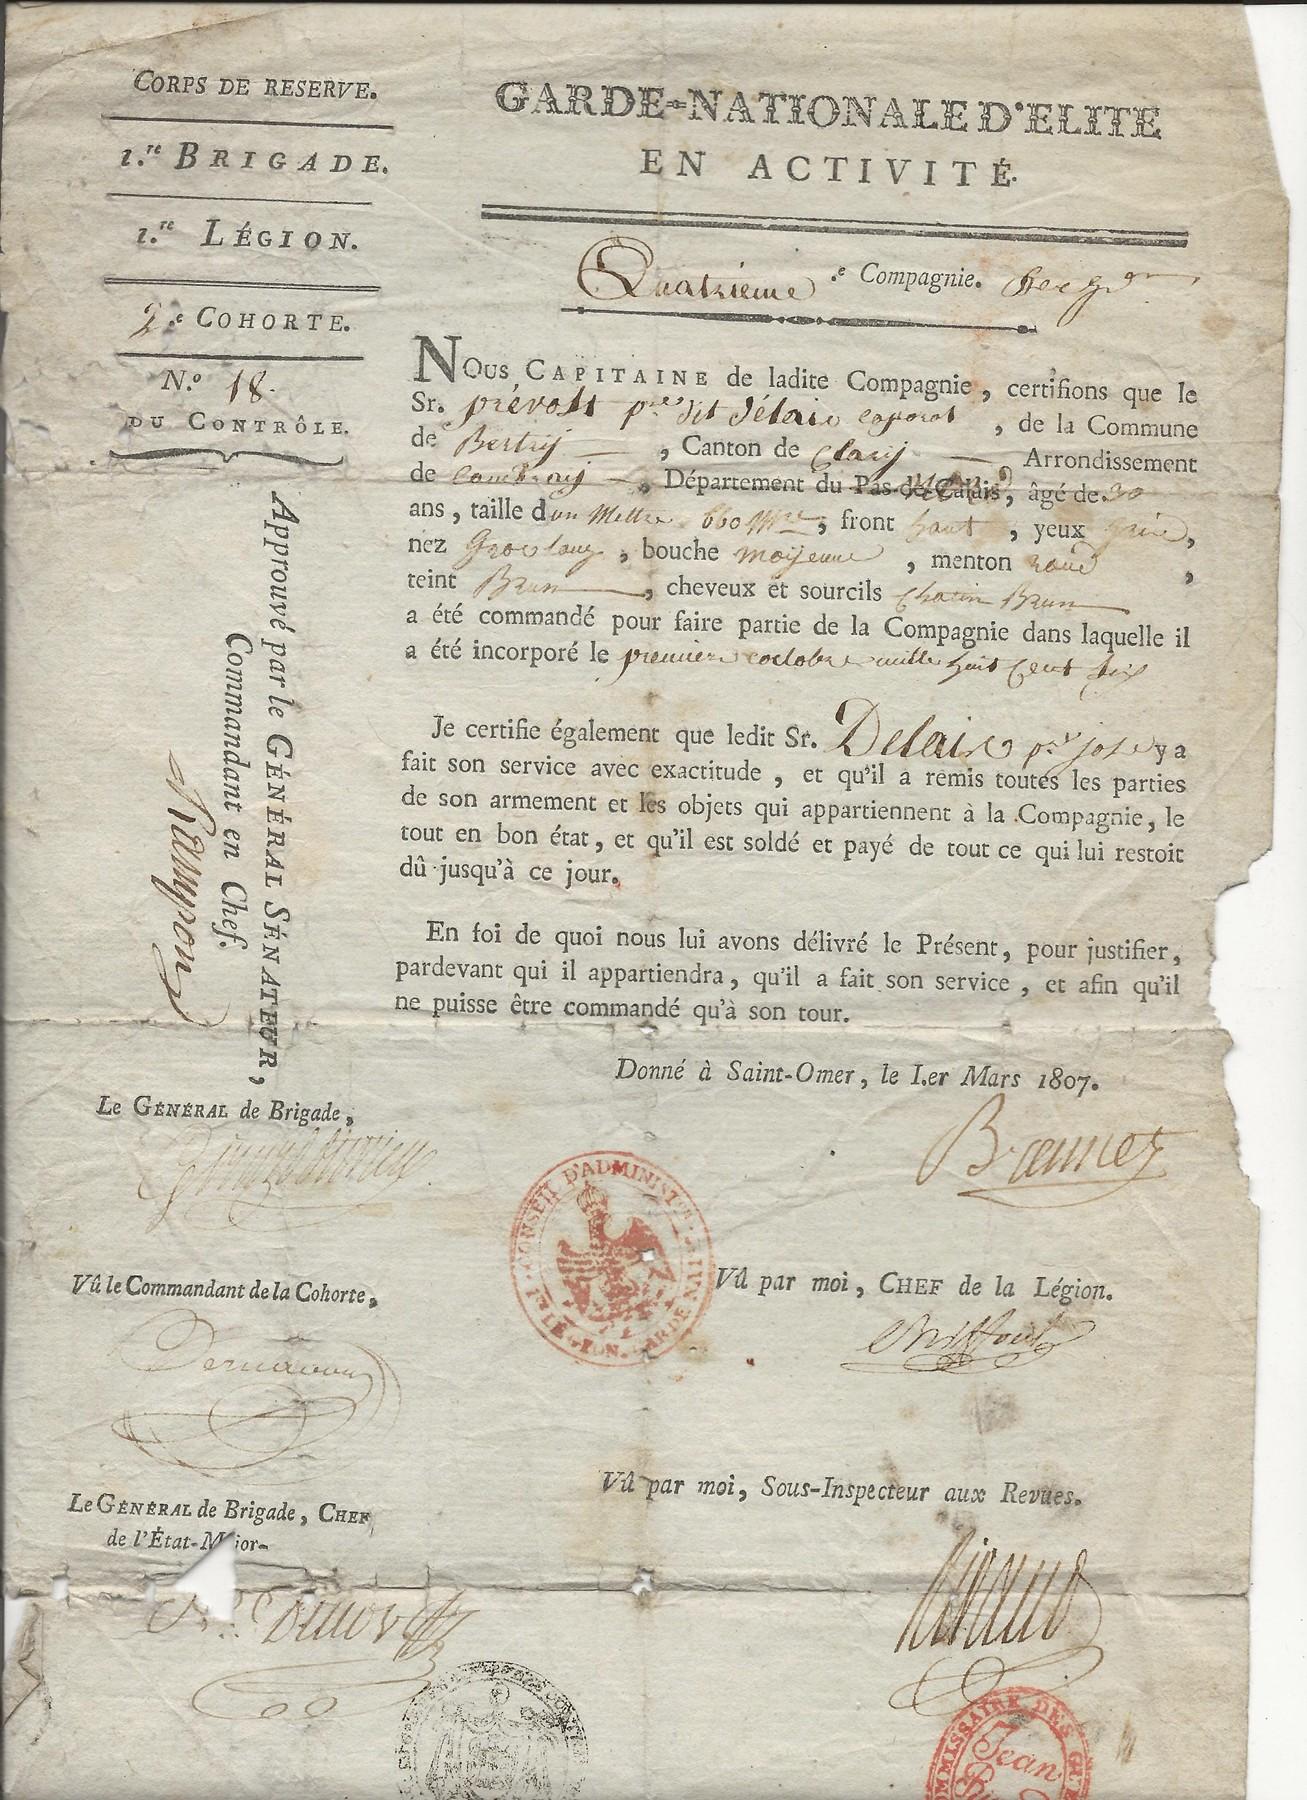 CORPS DE RESERVE.
1.re BRIGADE.
1.re LÉGION.
2.e COHORTE.
N.o 18.
DU CONTRÔLE.
GARDE-NATIONALE D'ELITE
EN ACTIVITÉ.
Quatrieme .e Compagnie.
NOUS CAPITAINE de ladite Compagnie, certifions que le
Sr. prévost pre dit Délair caporal, de la Commune
de Bertry, Canton de Clary Arrondissement
de Cambray, Département du Pas-de-Calais, âgé de 30
ans, taille d'un Mettre 660 Mre, front haut, yeux gris,
nez Gros long, bouche moyenne, menton rond,
teint Brun, cheveux et sourcils Chatin Brun
a été commandé pour faire partie de la Compagnie dans laquelle il
a été incorporé le premiere octobre mille huit Cent six
Je certifie également que ledit Sr. Delair pre jose y a
fait son service avec exactitude, et qu'il a remis toutes les parties
de son armement et les objets qui appartiennent à la Compagnie, le
tout en bon état, et qu'il est soldé et payé de tout ce qui lui restoit
dû jusqu'à ce jour.
En foi de quoi nous lui avons délivré le Présent, pour justifier,
pardevant qui il appartiendra, qu'il a fait son service, et afin qu'il
ne puisse être commandé qu'à son tour.
Donné à Saint-Omer, le I.er Mars 1807.
Approuvé par le GÉNÉRAL SÉNATEUR,
Commandant en Chef.
Rampon
Le GÉNÉRAL de Brigade,
CONSEIL D'ADMINISTon
1re LÉGION. GARDE NATIV
Vû le Commandant de la Cohorte,
Vû par moi, CHEF de la Légion.
Le GÉNÉRAL de Brigade, CHEF
de l'État-Major-
Vû par moi, Sous-Inspecteur aux Revues.
COMMISSAIRE DES GUE
Jean